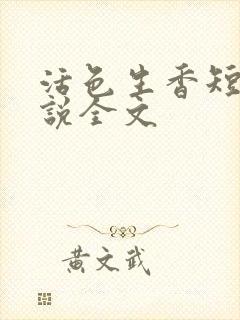 活色生香短
說全文
黃文武